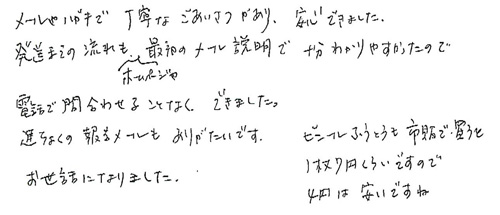 メールやハガキで丁寧なごあいさつがあり、安心できました。
発送までの流れも、最初のメール説明で十分わかりやすかったので
ホームページや
電話で問合わせることなく、できました。
進ちょくの報告メールもありがたいです。
お世話になりました。
ビニールふうとうも市販で買うと
1枚7円くらいですので
4円は安いですね